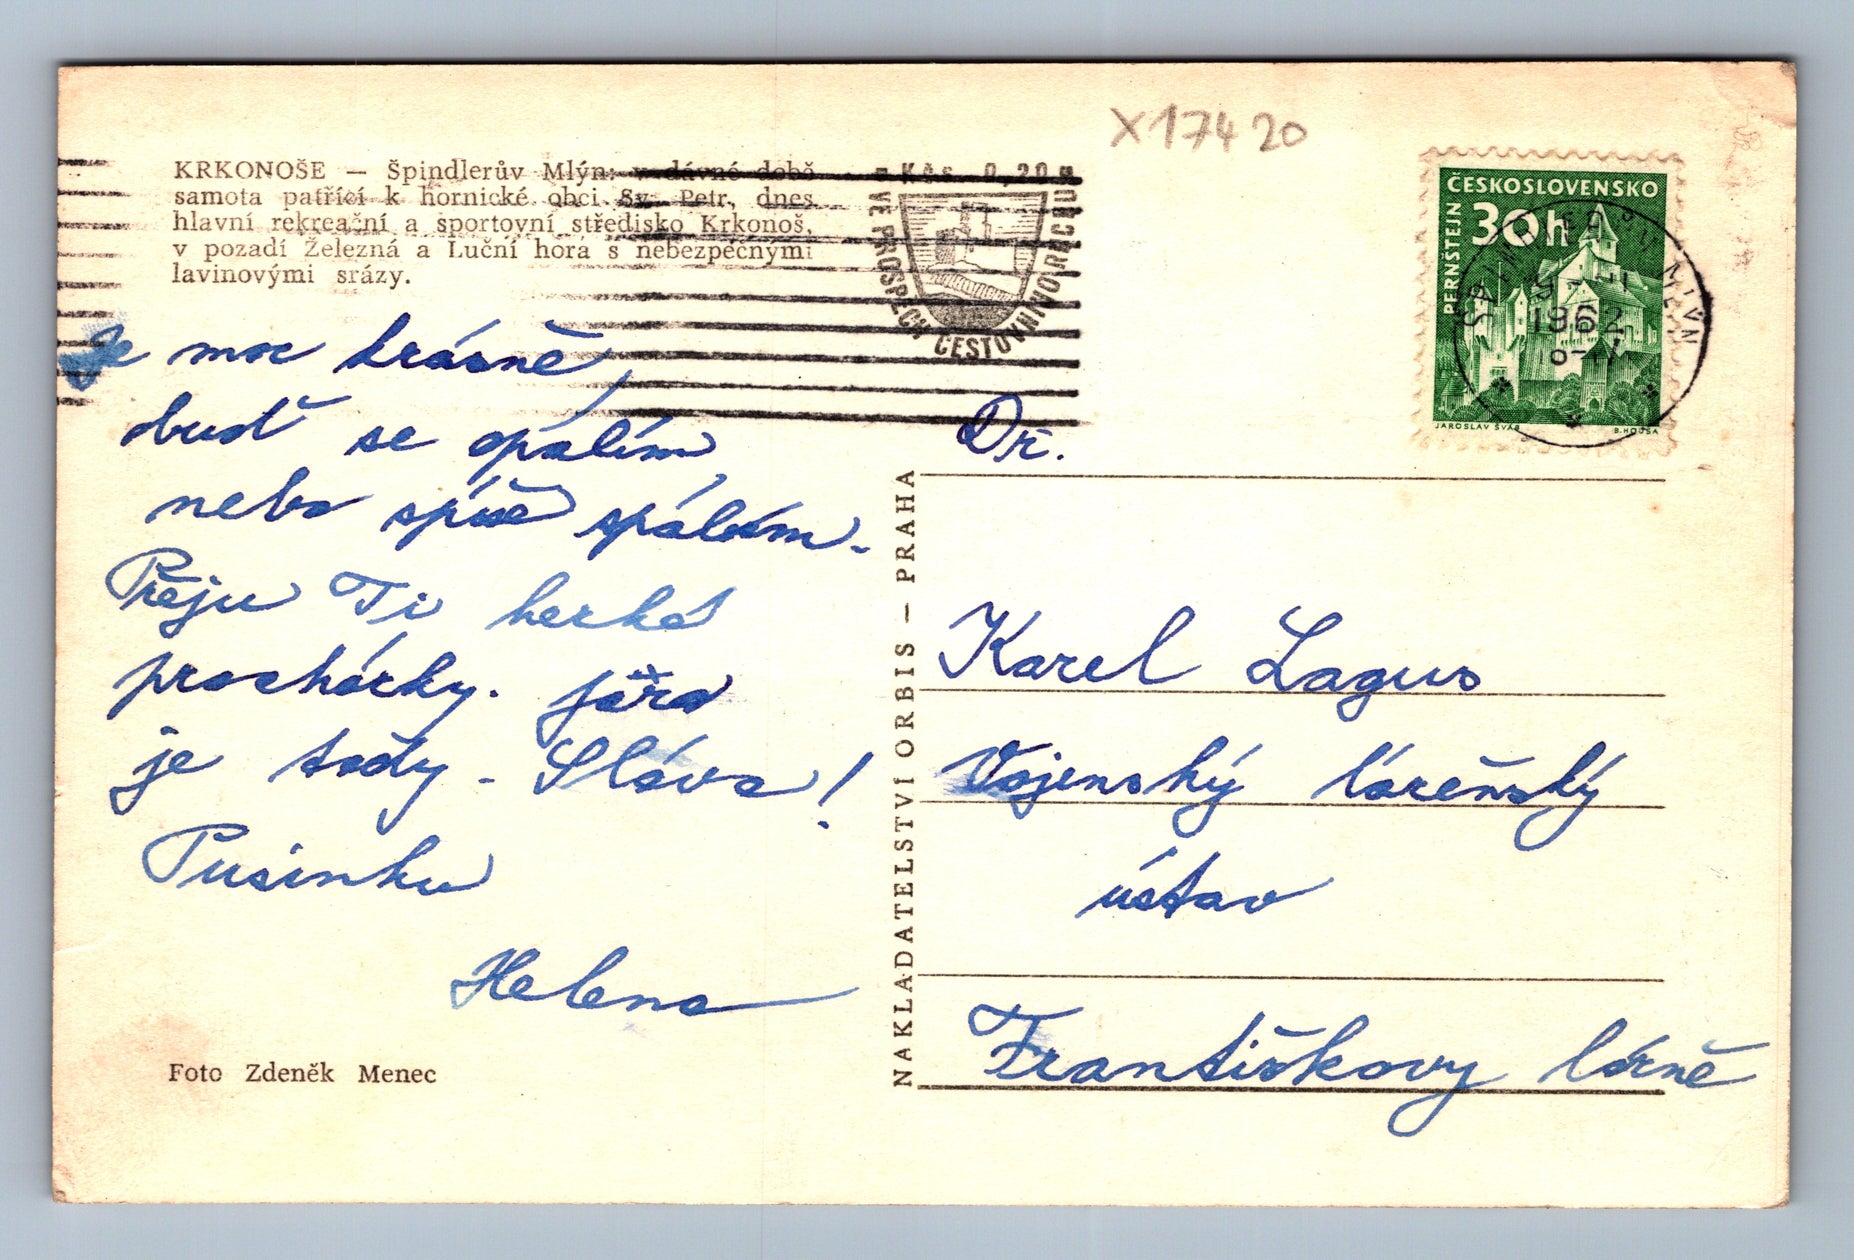 X17420
KRKONOŠE — Špindlerův Mlýn: v dávné době
samota patřící k hornické obci Sv. Petr, dnes
hlavní rekreační a sportovní středisko Krkonoš,
v pozadí Železná a Luční hora s nebezpečnými
lavinovými srázy.
Kčs 0,20
VE PROSPĚCH CESTOVNÍHO RUCHU
ČESKOSLOVENSKO
30h
PERNŠTEJN
JAROSLAV ŠVÁB
B. HOUSA
ŠPINDLERŮV MLÝN
1962
Je moc krásně,
buď se opálím,
nebo spíše spálím.
Přeju Ti hezké
procházky. Jára
je tady - Sláva!
Pusinku
Helena
Foto Zdeněk Menec
NAKLADATELSTVÍ ORBIS — PRAHA
Dr.
Karel Lagus
Vojenský lázeňský
ústav
Františkovy lázně